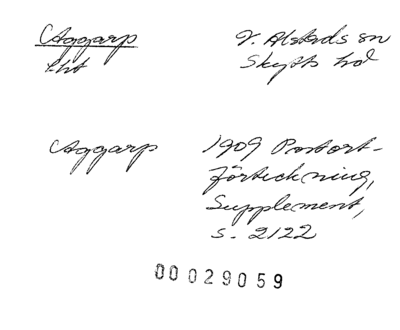 Aggarp V. Alstads sn
hlt Skytts hd
Aggarp 1909 Postort-
förteckning,
Supplement,
s. 2122
00029059